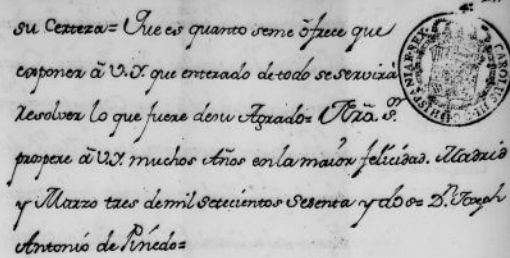 su Certeza= Que es quanto seme ófrece que
exponer à V.Y. que enterado detodo seservirà
Resolver lo que fuere desu Agrado= Nrã. Sr.
prospere à V.Y. muchos Años enla maior felicidad. Madrid
y Marzo tres demil setecientos Sesenta y dos= Dn. Joseph
Antonio de Pinedo=
CAROLUS III D G HISPANIAR REX